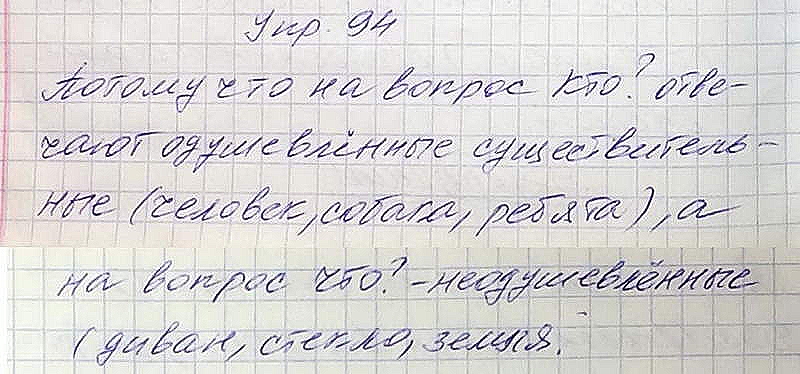 Упр. 94
Потому что на вопрос кто? отве-
чают одушевлённые существитель-
ные (человек, собака, ребята), а
на вопрос что? - неодушевлённые
(диван, стекло, земля.